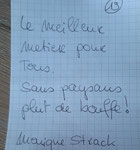 19
Le meilleur
metier pour
Tous.
Sans paysans
plut de bouffe!
Monique Strach